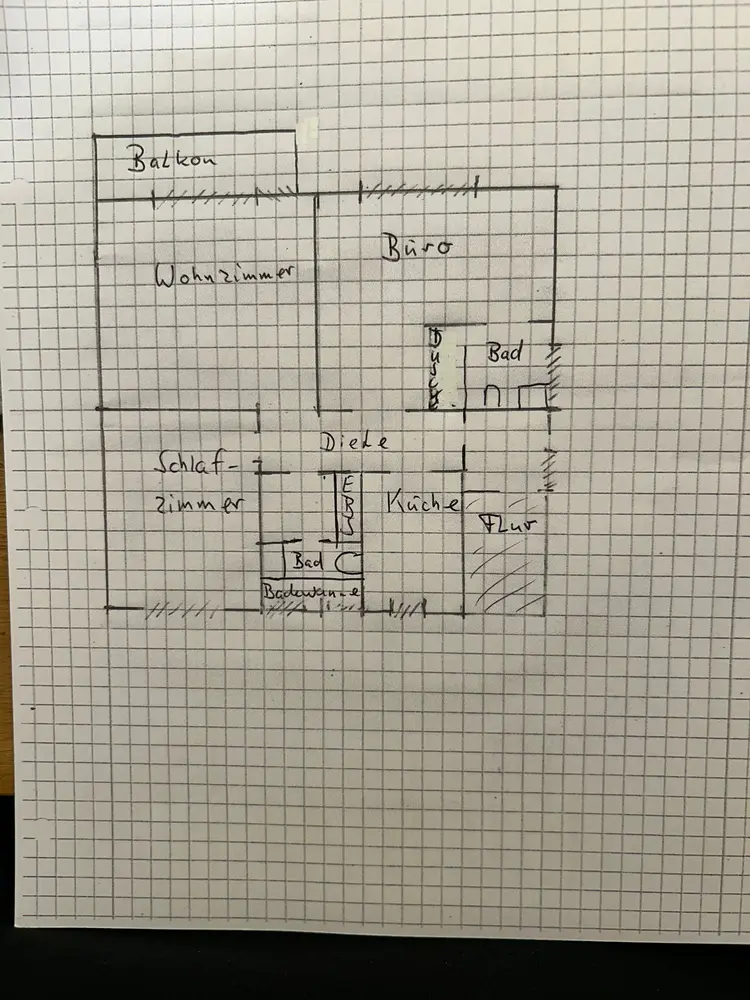 Balkon
Büro
Wohnzimmer
Dusche
Bad
Diele
Schlaf-
zimmer
EBW
Küche
Flur
Bad
Badewanne